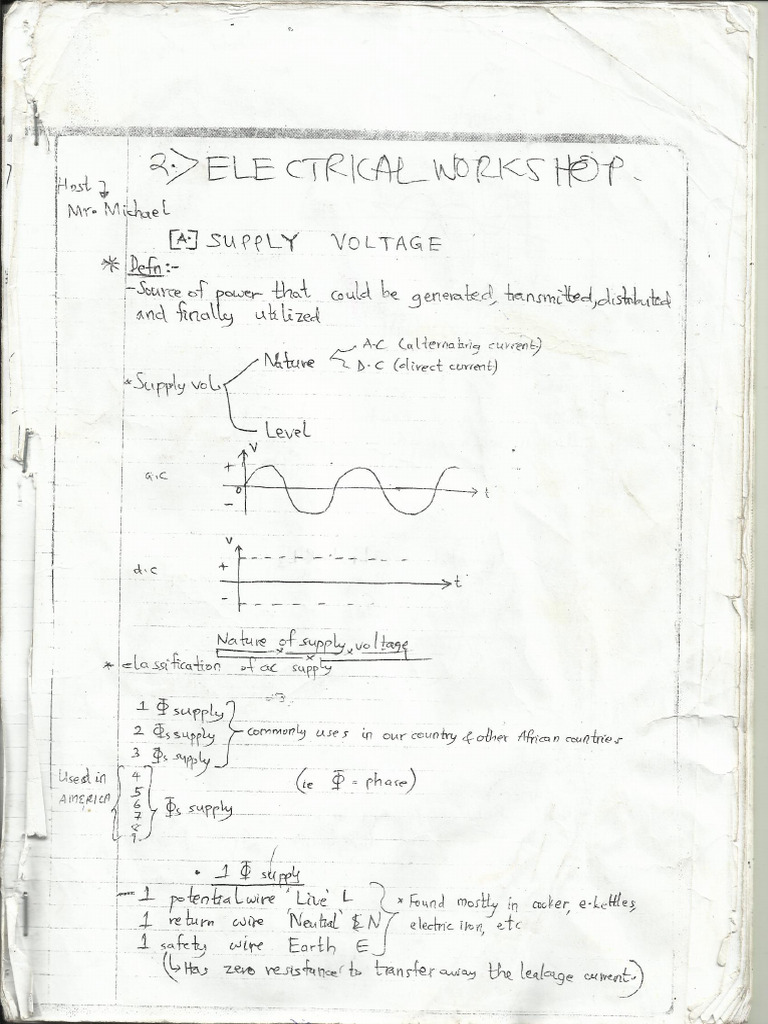 2.> ELECTRICAL WORKSHOP.
Host
Mr. Michael
[A.] SUPPLY VOLTAGE
* Defn:-
- Source of power that could be generated, transmitted, distributed
and finally utilized
Nature
A.C (alternating current)
D.C (direct current)
* Supply vol.
Level
V
+
a.c
0
t
-
V
+
d.c
t
-
Nature of supply voltage
* classification of ac supply
1 Φ supply
2 Φs supply - commonly uses in our country & other African countries
3 Φs supply
Used in
AMERICA
4
5
6
7
8
9
Φs supply
(ie Φ = phase)
• 1 Φ supply
- 1 potential wire 'Live' L
* Found mostly in cooker, e-kettles,
1 return wire 'Neutral' N
electric iron, etc
1 safety wire Earth E
(↳ Has zero resistance to transfer away the leakage current.)